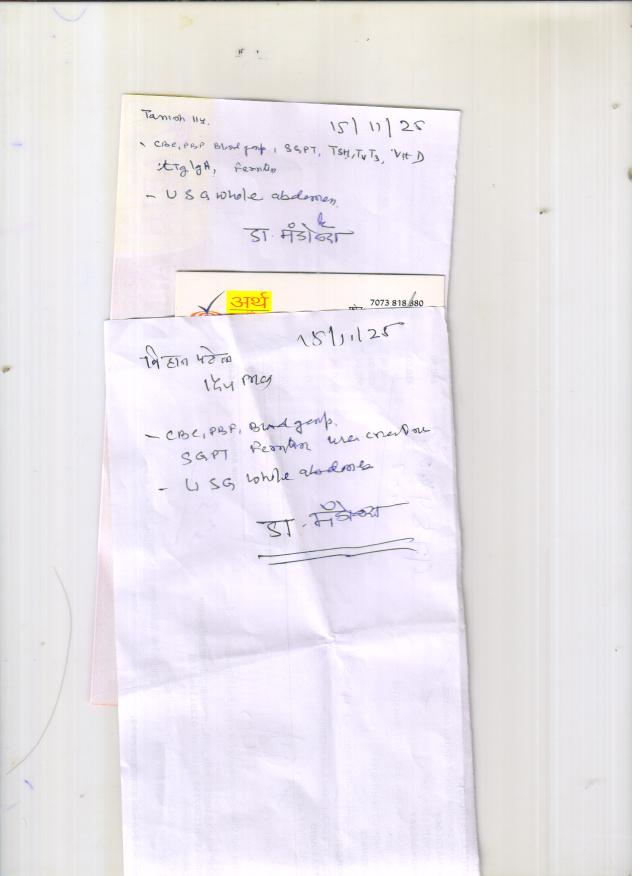 Tanish 11y.
15/11/25
- CBC, PBF Blood group, SGPT, TSH, T4 T3, Vit D
tTg IgA, Ferritin
- USG whole abdomen
डा.
अर्थ
7073 818 880
15/11/25
विहान पटेल
- CBC, PBF, Blood group.
SGPT Ferritin urea creatinine
- USG whole abdomen
डा.